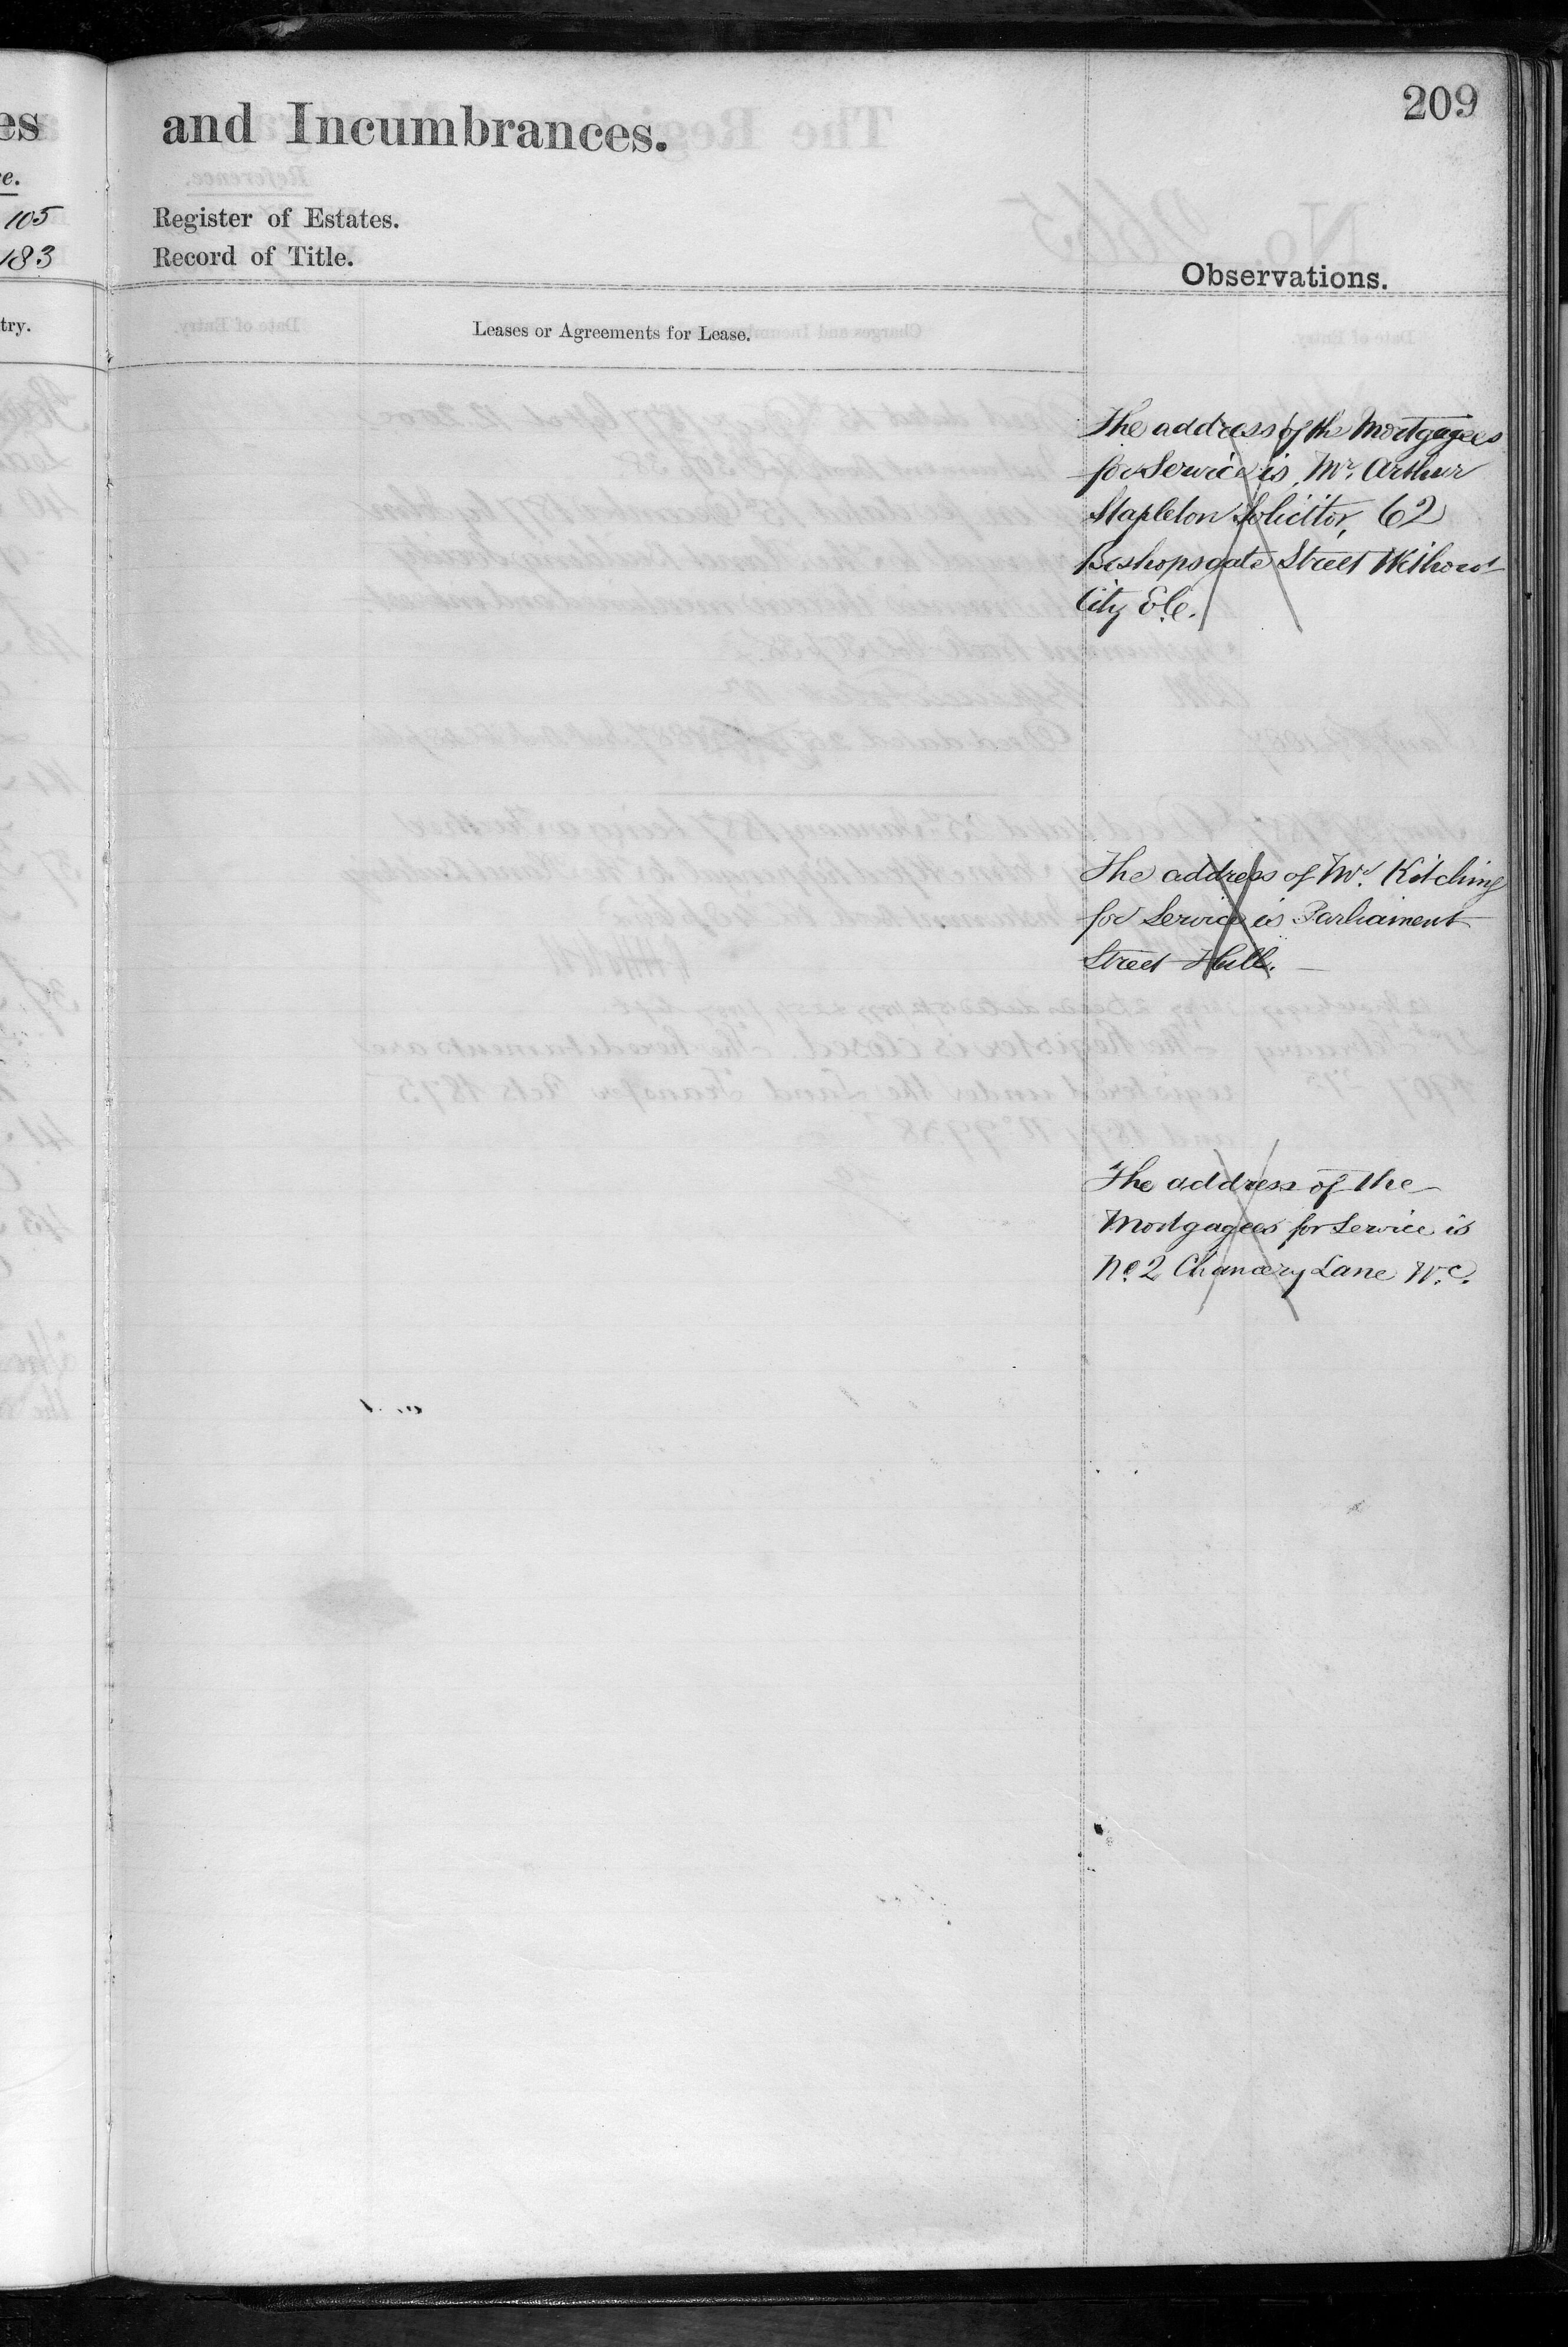 es
e.
105
183
try.
and Incumbrances.
209
Register of Estates.
Record of Title.
Observations.
Leases or Agreements for Lease.
The address of the Mortgagees
for Service is Mr. Arthur
Stapleton Solicitor, 62
Bishopsgate Street Without
City E.C.
The address of Mr. Kitching
for Service is Parliament
Street Hull.
The address of the
Mortgagees for Service is
No. 2 Chancery Lane W.C.